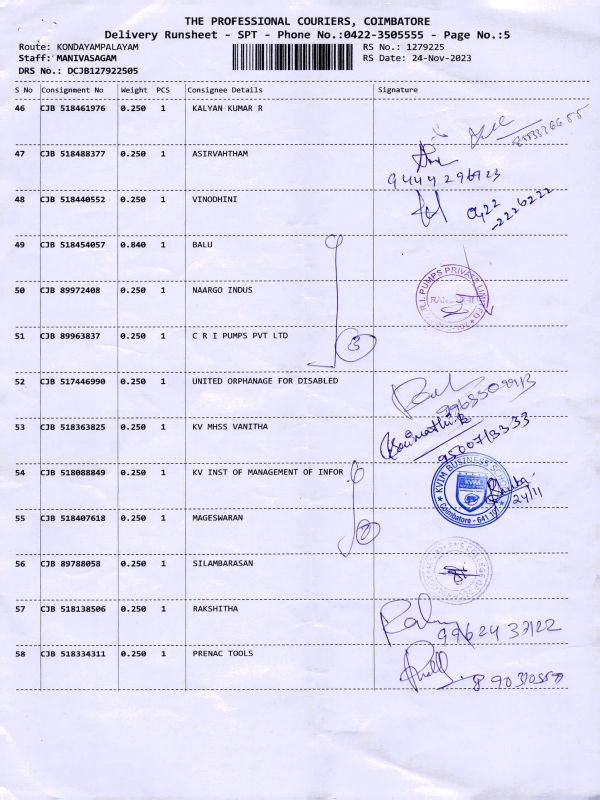 THE PROFESSIONAL COURIERS, COIMBATORE
Delivery Runsheet - SPT - Phone No.:0422-3505555 - Page No.:5
Route: KONDAYAMPALAYAM
RS No.: 1279225
Staff: MANIVASAGAM
RS Date: 24-Nov-2023
DRS No.: DCJB127922505
S No Consignment No Weight PCS Consignee Details Signature
46 CJB 518461976 0.250 1 KALYAN KUMAR R
47 CJB 518488377 0.250 1 ASIRVAHTHAM
9444296723
48 CJB 518440552 0.250 1 VINODHINI
0422
-2226222
49 CJB 518454057 0.840 1 BALU
50 CJB 89972408 0.250 1 NAARGO INDUS
R.I. PUMPS PRIVATE LIMITED
51 CJB 89963837 0.250 1 C R I PUMPS PVT LTD
3
52 CJB 517446990 0.250 1 UNITED ORPHANAGE FOR DISABLED
53 CJB 518363825 0.250 1 KV MHSS VANITHA
9500713333
54 CJB 518088849 0.250 1 KV INST OF MANAGEMENT OF INFOR
KVIM BUSINESS SCHOOL
Coimbatore - 641 107
24/11
55 CJB 518407618 0.250 1 MAGESWARAN
56 CJB 89788058 0.250 1 SILAMBARASAN
57 CJB 518138506 0.250 1 RAKSHITHA
9962437122
58 CJB 518334311 0.250 1 PRENAC TOOLS